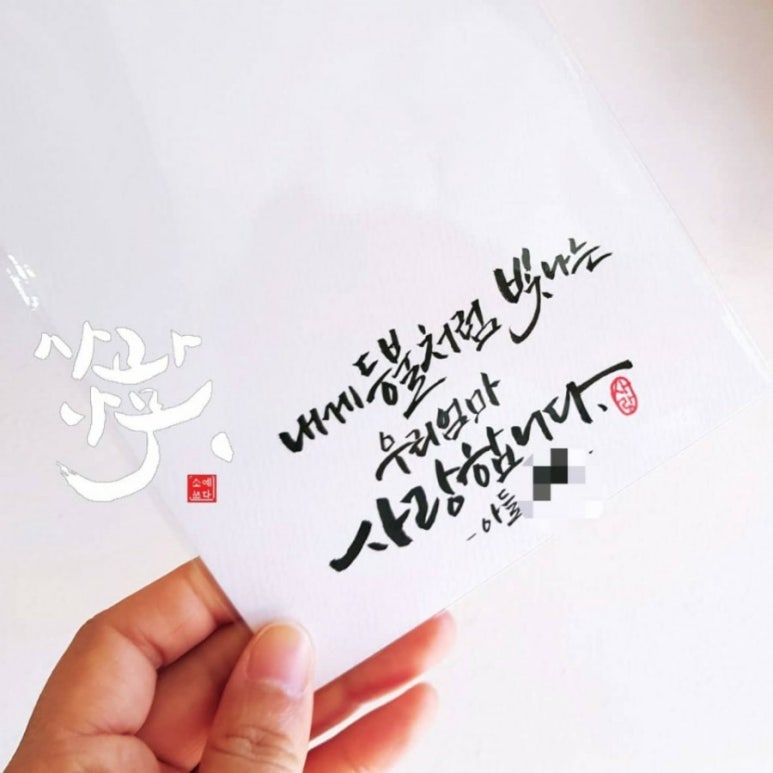 내게 등불처럼 빛나는
우리엄마
사랑합니다.
-아들
소예
쓰다